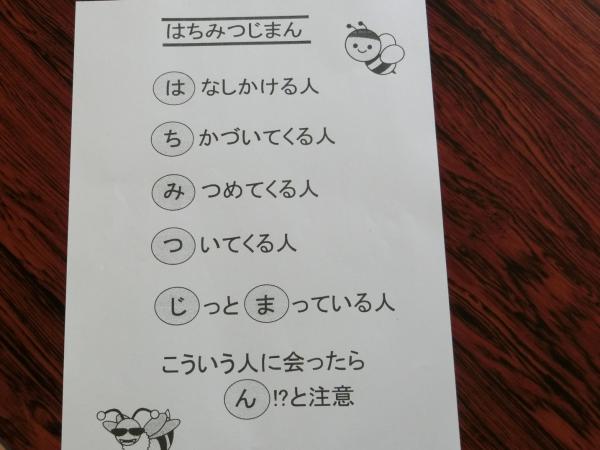 はちみつじまん
はなしかける人
ちかづいてくる人
みつめてくる人
ついてくる人
じっとまっている人
こういう人に会ったら
ん!?と注意